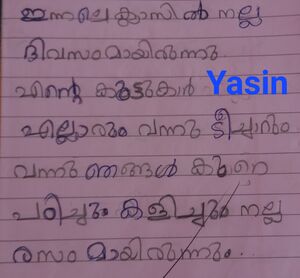 ഇന്നലെ ക്ലാസിൽ നല്ല
ദിവസംമായിരുന്നു
എന്റെ കൂട്ടുകാർ Yasin
എല്ലാരും വന്നു ടീച്ചറും
വന്നു ഞങ്ങൾ കുറെ
പഠിച്ചും കളിച്ചും നല്ല
രസംമായിരുന്നും..